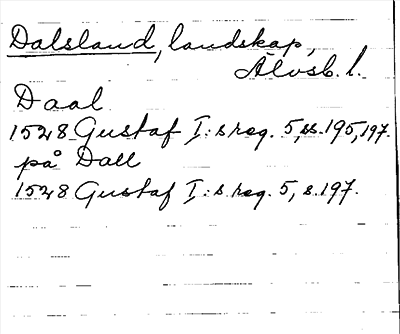 Dalsland, landskap,
Älvsb. l.
Daal
1528 Gustaf I:s reg. 5, ss. 195, 197.
på Dall
1528 Gustaf I:s reg. 5, s. 197.